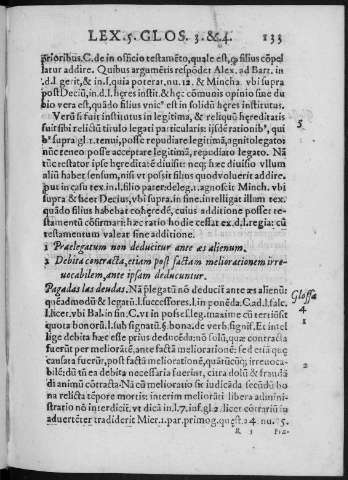 LEX.5. GLOS. 3.&4. 133
prioribus. C. de in officio testamēto, quale est, q̃ filius cōpel
latur addire. Quibus argumētis respōdet Alex. ad Bart. in
.d.l. gerit, & in.l. quia poterat, nu. 12. & Mincha. vbi supra
post Deciū, in.d.l. hęres instit. & hęc cōmunis opinio sine du
bio vera est, quādo filius vnicꝰ est in solidū hęres institutus.
Verū si fuit institutus in legitima, & reliquū hęreditatis 5
fuit sibi relictū titulo legati particularis: ipsi
bꝰ supra gl. 1. tenui, posse repudiare legitimā, agnito legato:
nūc teneo posse acceptare legitimā, repudiato legato. Nā
tūc testator ipse hęreditatē diuisit: neq; hac diuisio vllum
aliū habet sensum, nisi vt possit filius quod voluerit addire.
put in casu tex. in.l. filio pater. de leg. 1. agnoscit Minch. vbi
supra & licet Decius, vbi supra, in fine. intelligat illum tex.
quādo filius habebat cohęredē, cuius additione posset te-
stamentū cōfirmari: hæc ratio hodie cessat ex.d.l. regia: cū
testamentum valeat sine additione.
1 Prælegatum non deducitur ante æs alienum.
2 Debita contracta, etiam post factam meliorationem irre-
uocabilem, ante ipsam deducuntur.
Pagadas las deudas. Nā prælegatū nō deducit ante æs alienū: Glossa 4
quéadmodū & legatū. l. successores. l. in ponēda. C. ad.l. falc. 1
l. licet. vbi Bal. in fin. C. vt in posses. leg. maxime cū tertiō sit
quota bonorū. l. sub signatū. §. bona. de verb. signif. Et intel
lige debita hæc esse prius deducēda: nō solū, quæ contracta
fuerūt per melioratē, ante factā meliorationē: sed etiā quę 2
causata fuerūt, post factā meliorationē, quātūcūq; irreuoca-
bilē: dū tn̄ ea debita necessaria fuerint, citra dolū & fraudā
di animū cōtracta. Nā cū melioratio sit iudicāda secūdū bo
na relicta tēpore mortis: interim meliorāti libera admini-
stratio nō interdicit. vt dicā in.l. 7. inf. gl. 2. licet cōtrariū in
aduertēter tradiderit Mier. 1. par. primog. quęst. 24. nu. 5.
R 3 Prę-